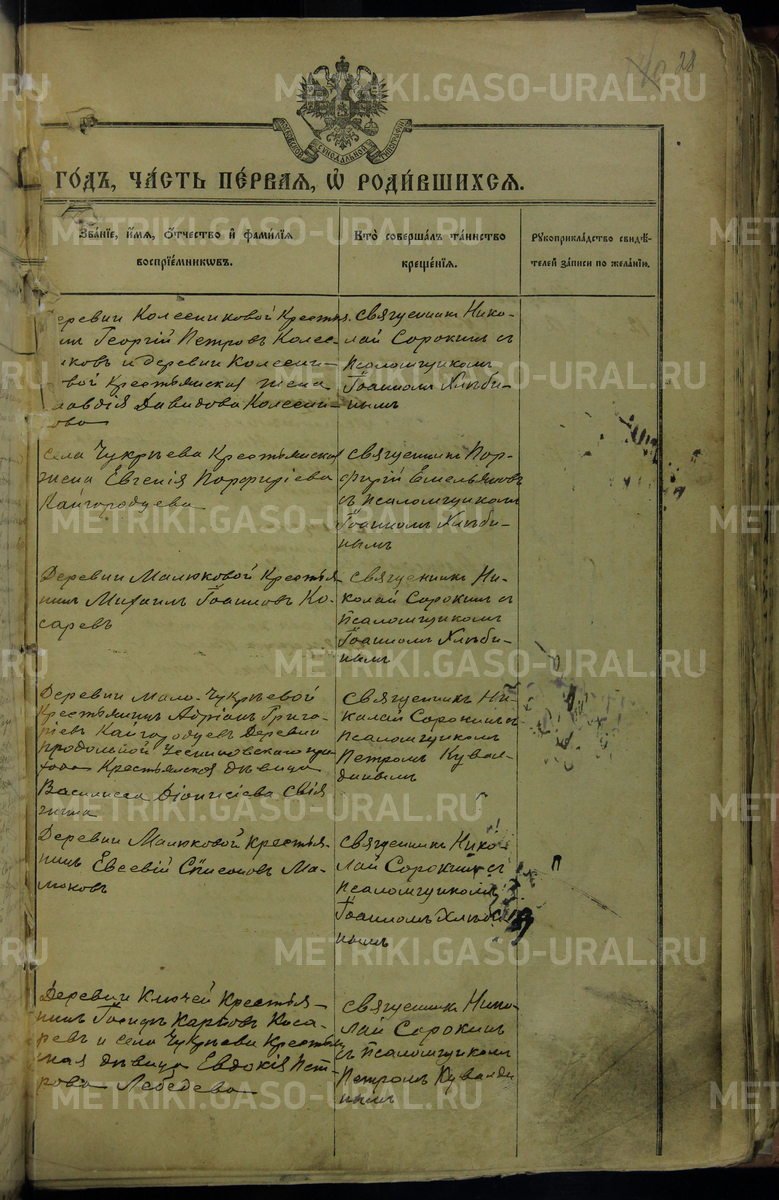 40 28
ГОДЪ, ЧАСТЬ ПЕРВАЯ, Ѡ РОДИВШИХСЯ.
Званіе, имя, отчество и фамилія
воспріемниковъ.
Кто совершалъ таинство
крещенія.
Рукоприкладство свидѣ-
телей записи по желанію.
Деревни Колесниковой Крестья
нинъ Георгій Петровъ Колес-
никовъ и деревни Колесни-
ковой крестьянская жена
Клавдія Давидова Колесни-
кова
Священникъ Нико-
лай Сорокинъ съ
Псаломщикомъ
Іоанномъ Хлѣби-
нымъ
села Чукрѣева Крестьянская
жена Евгенія Порфиріева
Кайгородцева
Священникъ Пор-
фирій Емельяновъ
съ Псаломщикомъ
Іоанномъ Хлѣби-
нымъ
Деревни Малюковой Крестья
нинъ Михаилъ Іоанновъ Ко-
саревъ
Священникъ Ни-
колай Сорокинъ съ
Псаломщикомъ
Іоанномъ Хлѣби-
нымъ
Деревни Мало-Чукрѣевой
Крестьянинъ Адріанъ Григо-
ріевъ Кайгородцевъ Деревни
Продольной при-
хода Крестьянская дѣвица
Василисса Діонисіева
Священникъ Ни-
колай Сорокинъ съ
Псаломщикомъ
Петромъ Кувал-
динымъ
Деревни Малюковой Крестья-
нинъ Евсевій Ма-
люковъ
Священникъ Нико-
лай Сорокинъ съ
Псаломщикомъ
Іоанномъ Хлѣби-
нымъ
Деревни Ключей Крестья-
нинъ Іосифъ Карповъ Коса-
ревъ и села Чукрѣева Крестьян
ская дѣвица Евдокія Пет-
рова Лебедева
Священникъ Нико-
лай Сорокинъ
съ Псаломщикомъ
Петромъ Кувалди
нымъ
METRIKI.GASO-URAL.RU